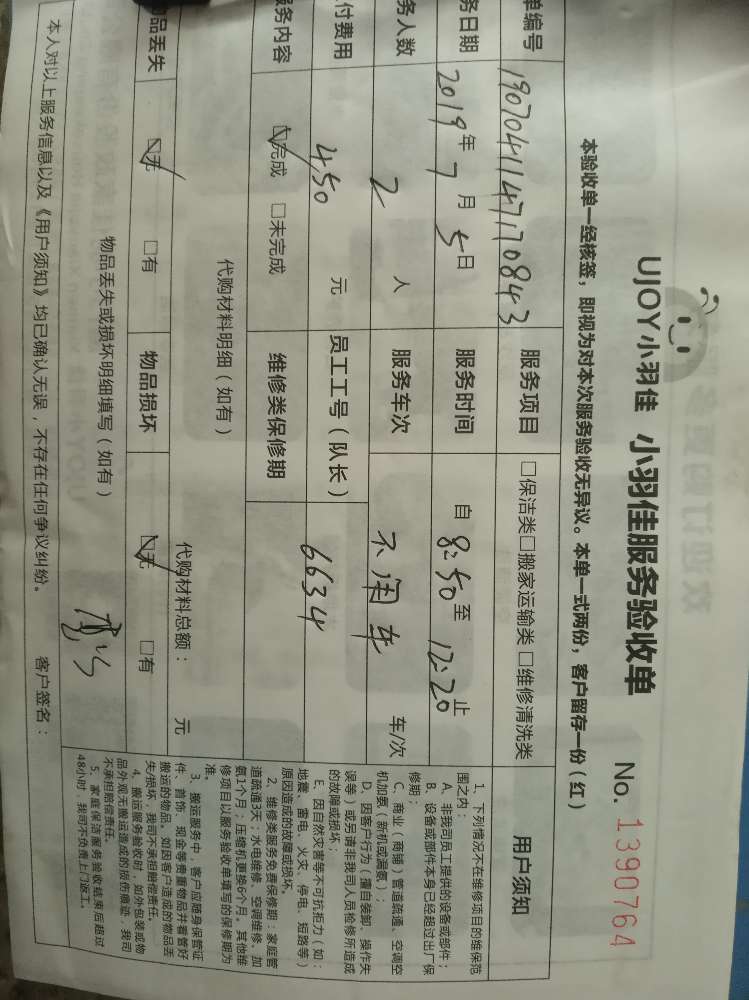 UJOY小羽佳 小羽佳服务验收单 No. 1390764
本验收单一经核签，即视为对本次服务验收无异议。本单一式两份，客户留存一份（红）
单编号 1907041147170843 服务项目 □保洁类□搬家运输类 □维修清洗类
务日期 2019年 7 月 5日 服务时间 自 8:50 至 12:20 止
务人数 2 人 服务车次 不用车 车/次
付费用 450 元 员工工号（队长） 6634
务内容 ☑完成 □未完成 维修类保修期
代购材料明细（如有） 代购材料总额： 元
品丢失 ☑无 □有 物品损坏 ☑无 □有
物品丢失或损坏明细填写（如有）
本人对以上服务信息以及《用户须知》均已确认无误，不存在任何争议纠纷。 客户签名：
用户须知
1、下列情况不在维修项目的维保范
围之内：
A、非我司员工提供的设备或部件；
B、设备或部件本身已经超过出厂保
修期；
C、商业（商铺）管道疏通、空调空
机加氨（新机或漏氨）；
D、因客户行为（擅自装卸、操作失
误等）或另请非我司人员检修所造成
的故障或损坏；
E、因自然灾害等不可抗拒力（如：
地震、雷电、火灾、停电、短路等）
原因造成的故障或损坏。
2、维修类服务免费保修期：家庭管
道疏通3天；水电维修、空调维修、加
氨1个月；压缩机更换6个月。其他维
修项目以服务验收单填写的保修期为
准。
3、搬运服务中，客户应随身保管证
件、首饰、现金等贵重物品并看管好
搬运的物品。如因客户造成的物品丢
失/损坏，我司不承担赔偿责任。
4、搬运服务验收时，如外包装或物
品外观无搬运造成的损伤痕迹，我司
不承担赔偿责任。
5、家庭保洁服务验收结束后超过
48小时，我司不负责上门返工。